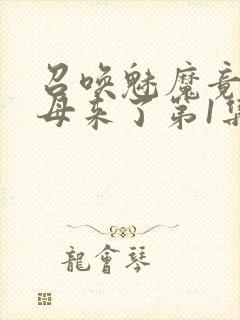 召唤魅魔竟
母来了第1集
龍會琴